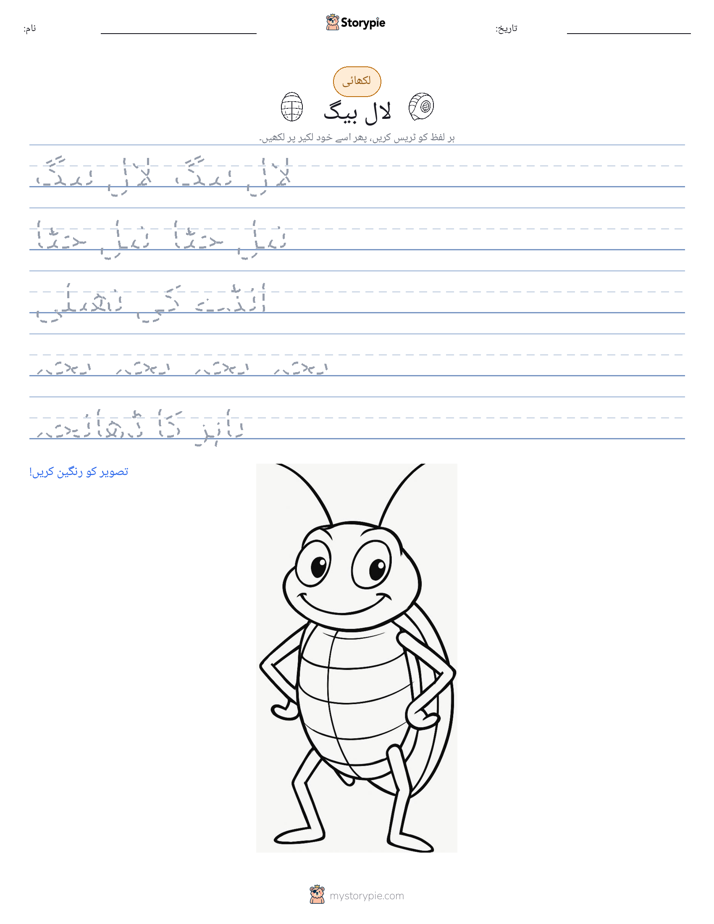 نام:
Storypie
تاریخ:
لکھائی
لال بیگ
ہر لفظ کو ٹریس کریں، پھر اسے خود لکیر پر لکھیں۔
لال بیگ لال بیگ
تیل چٹا تیل چٹا
انڈے کی تھیلی
بچہ بچہ بچہ بچہ
باہر کا ڈھانچہ
تصویر کو رنگین کریں!
mystorypie.com